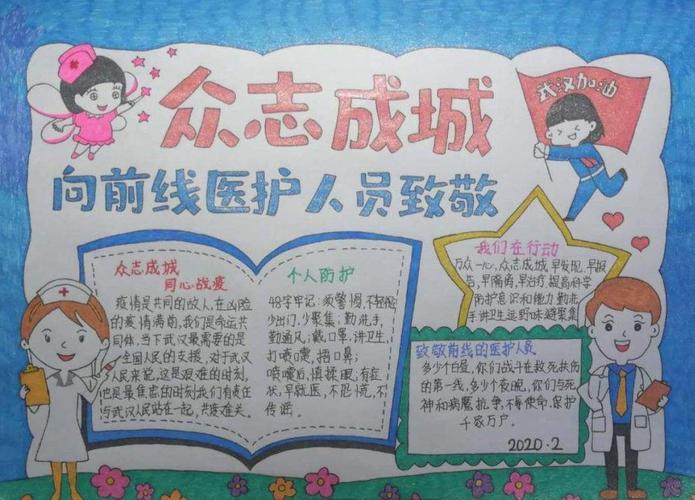 众志成城
武汉加油
向前线医护人员致敬
众志成城
同心战疫
疫情是共同的敌人,在凶险
的疫情满前,我们是命运共
同体,当下武汉最需要的是
全国人民的支援,对于武汉
人民来说,这是艰难的时刻,
也是最焦虑的时刻我们有责任
与武汉人民站在一起,共度难关。
个人防护
48字牢记:须警惕,不轻视
少出门,少聚集;勤洗手,
勤通风;戴口罩,讲卫生,
打喷嚏,捂口鼻;
喷嚏后,慎揉眼,有症
状,早就医,不恐慌,不
传谣。
我们在行动
万众一心,众志成城,早发现,早报
告,早隔离,早治疗,提高科学
防护意识和能力,勤洗
手讲卫生远野味避聚集
致敬前线的医护人员
多少个白昼,你们战斗在救死扶伤
的第一线,多少个夜晚,你们与死
神和病魔抗争,不辱使命,保护
千家万户。
2020.2